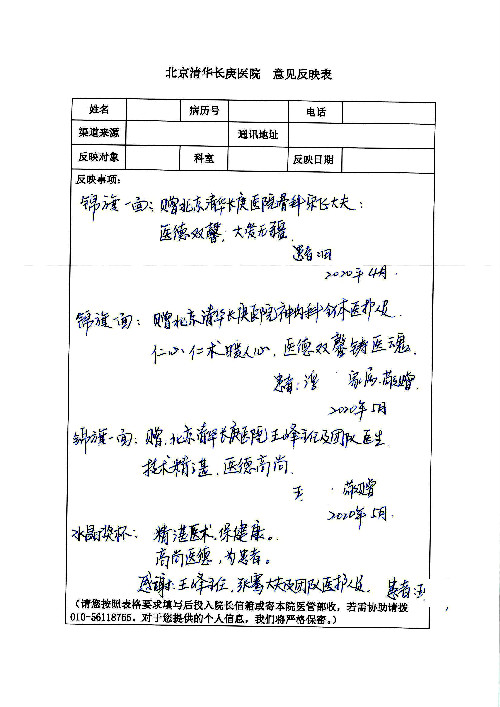 北京清华长庚医院 意见反映表
姓名 病历号 电话
渠道来源 通讯地址
反映对象 科室 反映日期
反映事项：
锦旗一面：赠北京清华长庚医院骨科宋飞大夫：
医德双馨，大爱无疆
患者：
2020年4月．
锦旗一面： 赠北京清华长庚医院神内科全体医护人员．
仁心仁术暖人心，医德双馨铸医魂．
患者： 家属．敬赠
2020年5月
锦旗一面：赠．北京清华长庚医院王峰主任及团队医生
技术精湛．医德高尚
王 敬赠
2020年5月．
水晶奖杯： 精湛医术，保健康。．
高尚医德，为患者。
感谢：王峰主任，张骞大夫及团队医护人员． 患者：
（请您按照表格要求填写后投入院长信箱或寄本院医管部收，若需协助请拨
010-56118765．对于您提供的个人信息，我们将严格保密。）